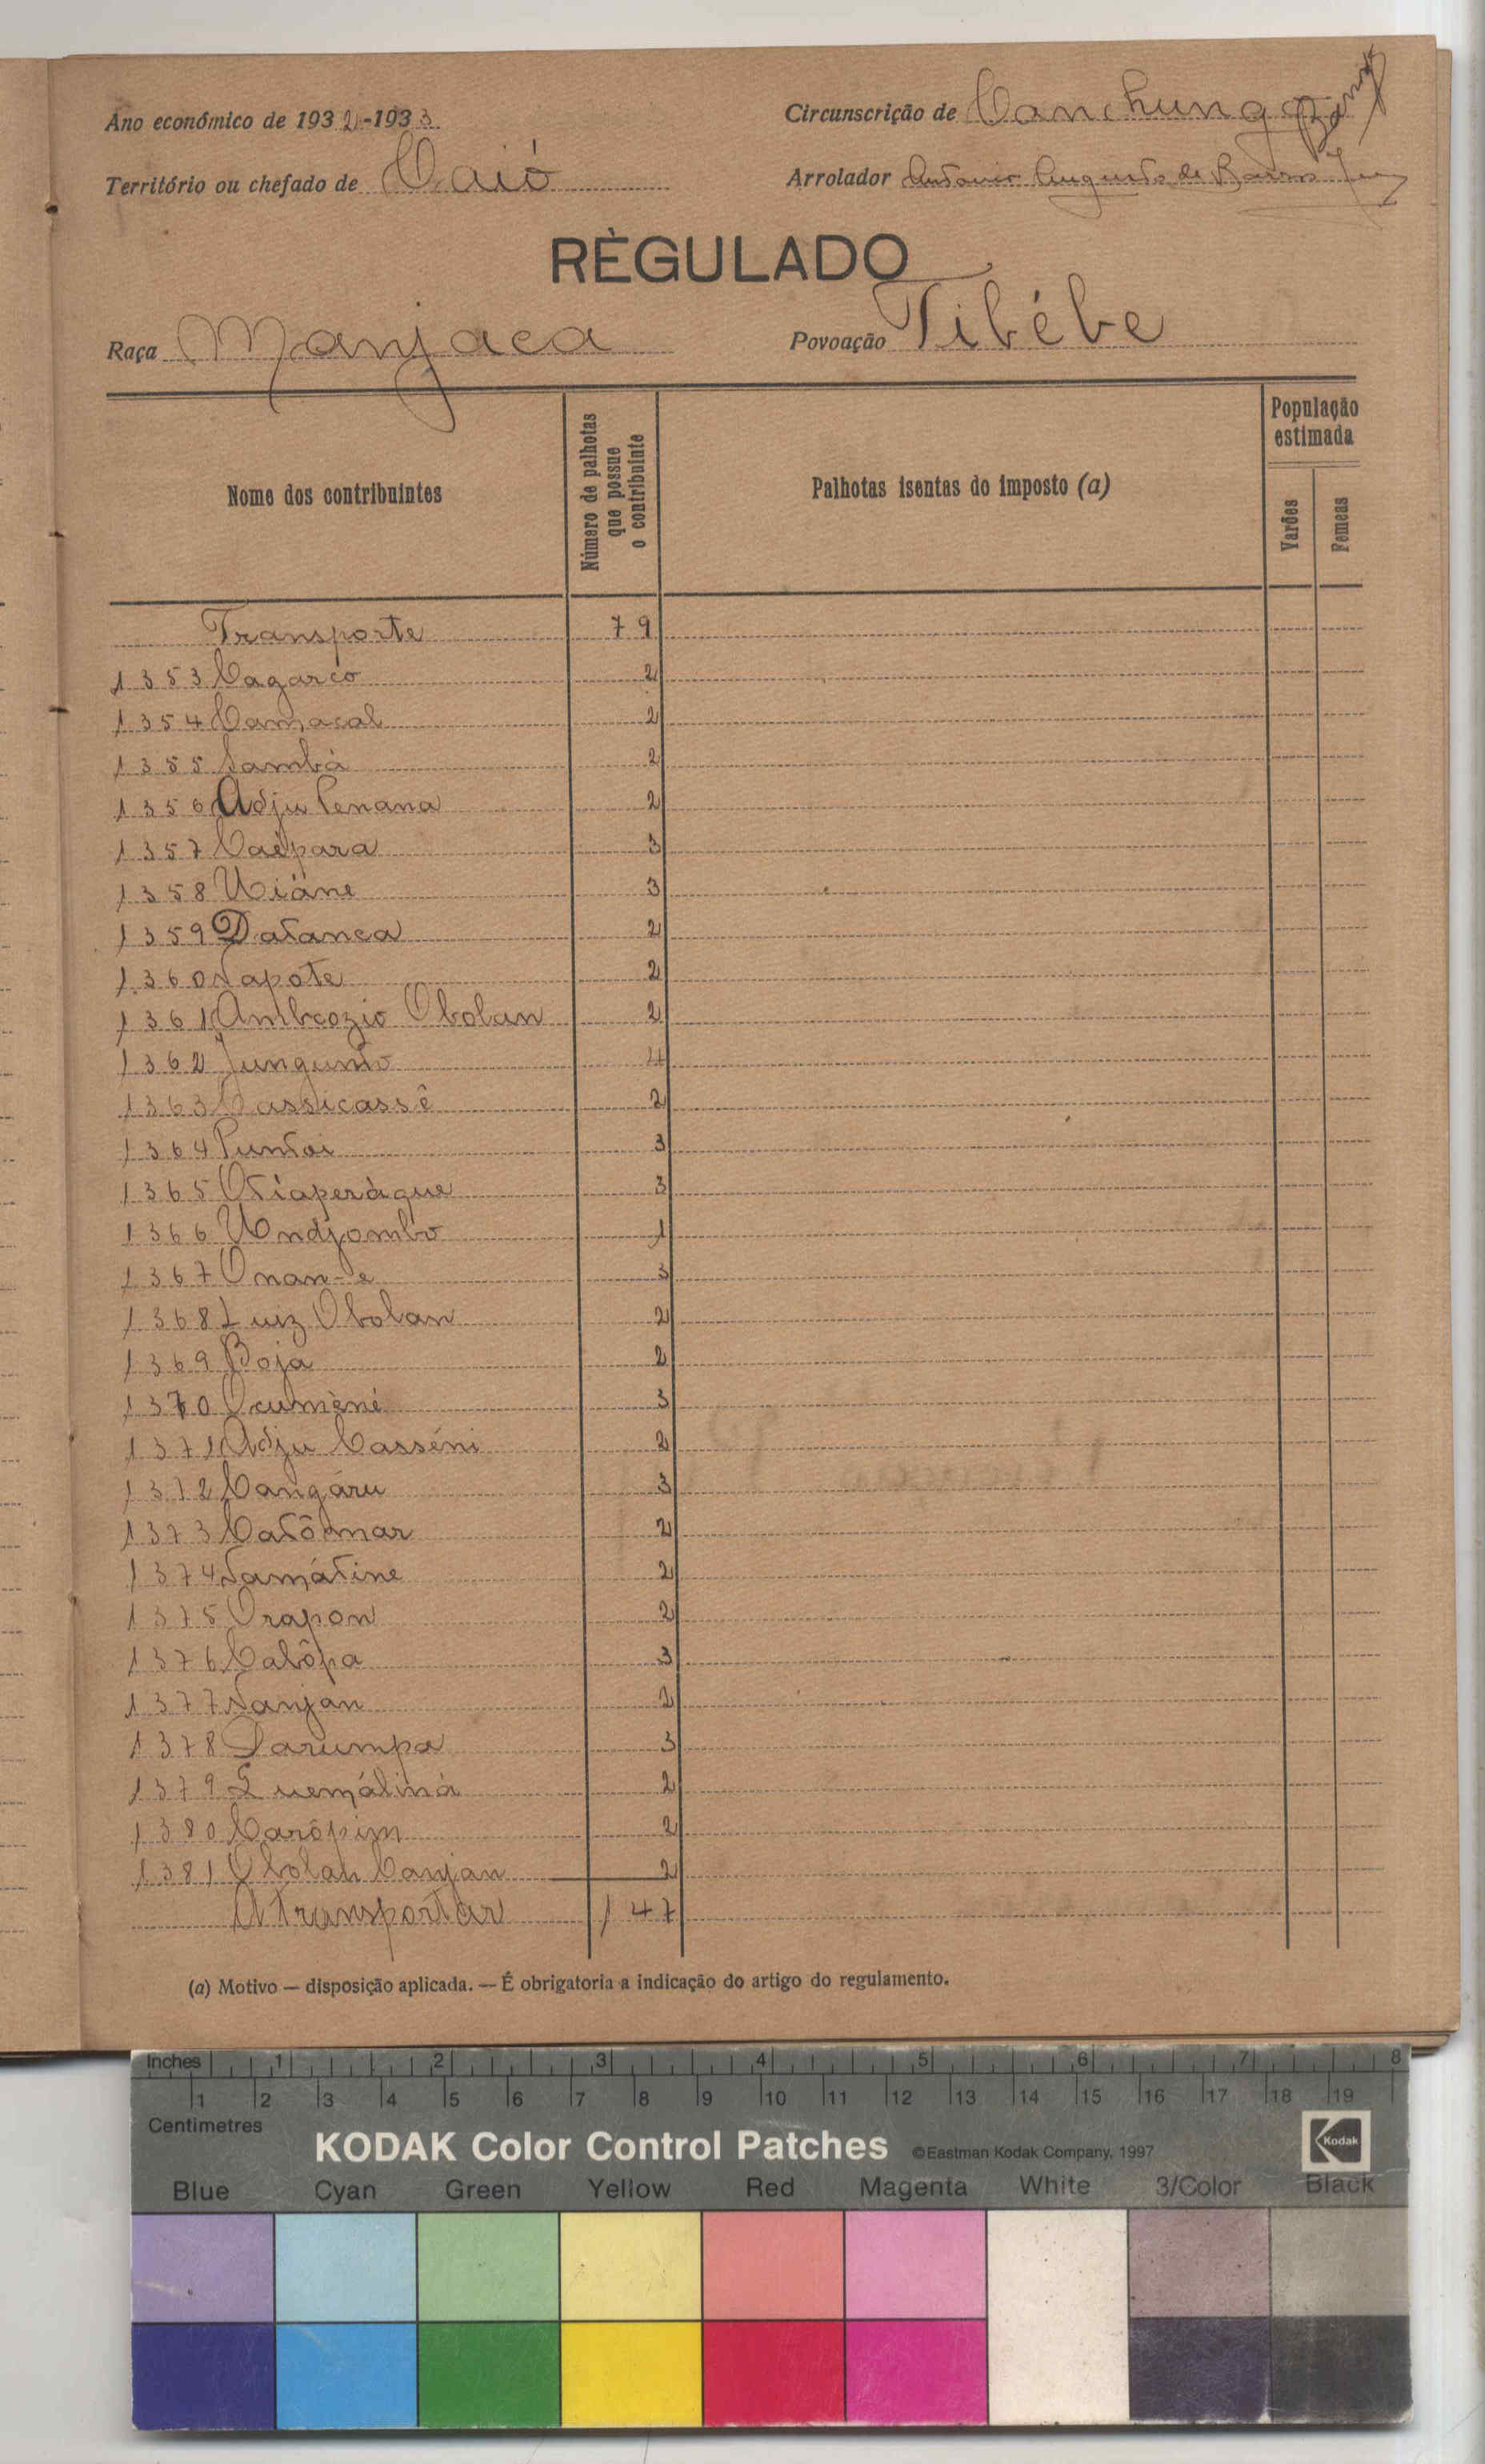 Ano económico de 1932-1933
Circunscrição de Canchungo
Território ou chefado de Caió
Arrolador Antonio Augusto de Barros
RÈGULADO
Raça Manjaca
Povoação Tibébe
Nome dos contribuintes
Número de palhotas que possue o contribuinte
Palhotas isentas do imposto (a)
População estimada
Varões
Femeas
Transporte 79
1353 Cagarco 2
1354 Camacal 2
1355 Sambà 2
1356 Adju Penana 2
1357 Caépara 3
1358 Uiáne 3
1359 Datanca 2
1360 Napote 2
1361 Ambrozio Obolan 2
1362 Jungunto 4
1363 Cassicassê 2
1364 Puntai 3
1365 Otiaperàque 3
1366 Undjombo 1
1367 Onan-e 3
1368 Luiz Obolan 2
1369 Boja 2
1370 Ocumèné 3
1371 Adju Casséni 2
1372 Cangáru 3
1373 Catômar 2
1374 Namátine 2
1375 Orapon 2
1376 Calôpa 3
1377 Nanjan 2
1378 Parumpa 3
1379 Quemáliná 2
1380 Carôpim 2
1381 Obolan Canjan 2
A transportar 147
(a) Motivo — disposição aplicada. — É obrigatoria a indicação do artigo do regulamento.
Inches 1 2 3 4 5 6 7 8
1 2 3 4 5 6 7 8 9 10 11 12 13 14 15 16 17 18 19
Centimetres
KODAK Color Control Patches ©Eastman Kodak Company, 1997 Kodak
Blue Cyan Green Yellow Red Magenta White 3/Color Black